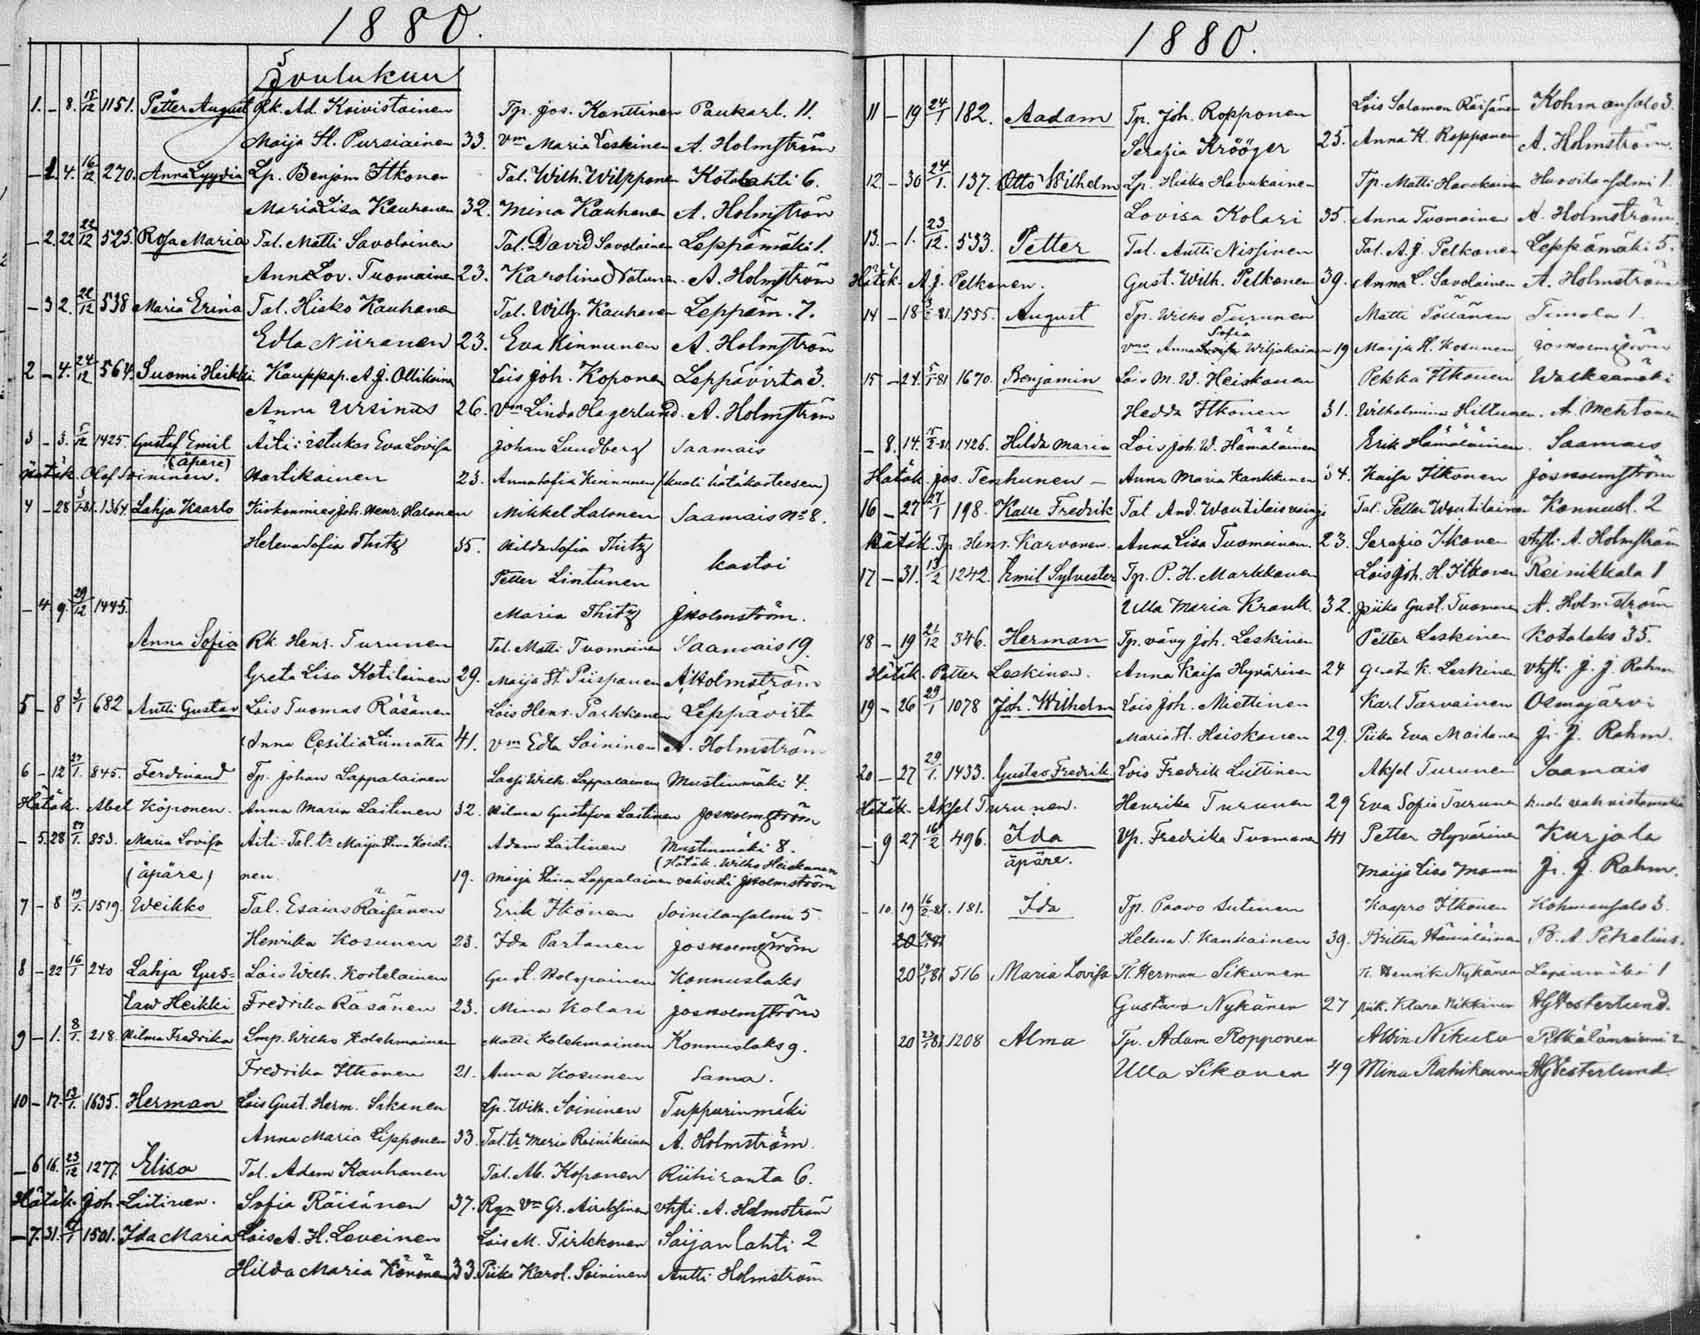 1880.
Joulukuu
1. – 8. 15/12 1151. Petter August Rk. Ad. Koivistoinen Tp. Jos. Kanttinen Paukarl. 11.
Maija St. Pursiainen 33. Vm Maria Leskinen A. Holmström
– 1. 4. 16/12 270. Anna Lyydia Lp. Benjam Itkonen Tal. Wilh. Wilpponen Kotalahti 6.
Maria Lisa Kauhanen 32. Mina Kauhanen A. Holmström
– 2. 22 22/12 525. Rosa Maria Tal. Matti Savolainen Tal. David Savolainen Leppämäki 1.
Anna Lov. Tuomainen 23. Karolina A. Holmström
– 3 2. 26/12 538 Maria Erina Tal. Hisko Kauhanen Tal. Wilh. Kauhanen Leppäm. 7.
Edla Niiranen 23. Eva Kinnunen A. Holmström
2 – 4. 24/12 564. Suomi Heikki Kauppap. A. J. Ollikainen Lois Joh. Koponen Leppävirta 3.
Anna Ursinus 26. Vm Linda Hagerlund. A. Holmström
3 – 3. 5/12 1425. Gustaf Emil Äiti: istukas Eva Lovisa Johan Lundberg Saamais
(äpäre)
Hätäk. Olof Soininen. Martikainen 23. Anna Sofia Kinnunen (kuoli hätäkasteesen)
4 – 28 1/1.81. 1364 Lahja Kaarlo Kirkonmies Joh. Henr. Halonen Mikkel Halonen Saamais No 8.
Helena Sofia Thitz 35. Hilda Sofia Thitz kastoi
Petter Lintunen
– 4. 9. 29/12 1445. Maria Thitz J Holmström.
Anna Sofia Rk. Henr. Turunen Tal. Matti Tuomainen Saamais 19.
Greta Lisa Kotilainen 29. Maija St. Piispanen A Holmström
5 – 8 3/1 682 Antti Gustav Lois Tuomas Räsänen Lois Henr. Parkkonen Leppävirta
Anna Cesilia Liimatta 41. Vm Edla Soininen A. Holmström
6 – 12 27/1. 845. Ferdinand Tp. Johan Lappalainen Lesji Wilh. Lappalainen Mustinmäki 4.
Hätäk. Abel Koponen. Anna Maria Laitinen 32. Hilma Gustafva Laitinen Jos Holmström
– 5. 28 27/1. 853. Maria Lovisa Äiti. Tal. tr Maija Stina Koisti- Adam Laitinen Mustinmäki 8.
(Hätäk. Wilho Heiskanen
(äpäre) nen. 19. Maija Stina Lappalainen vahvisti J Holmström
7 – 8 19/1. 1519. Weikko Tal. Esaias Räisänen Erik Itkonen Soinilansalmi 5.
Henrika Kosunen 23. Ida Partanen Jos Holmström
8 – 22 16/1 240 Lahja Gus- Lois Wilh. Kostelainen Gust. Holopainen Konnuslaks
taw Heikki Fredrika Räsänen 23. Mina Kolari Jos Holmström
9 – 1. 8/1. 218. Hilma Fredrika Smp. Wilho Kolehmainen Matti Kolehmainen Konnuslaks 9.
Fredrika Itkonen 21. Anna Kosunen Sama.
10 – 17. 13/1. 1635. Herman Lois Gust. Herm. Sikanen Lp. Wilh. Soininen Tuppurinmäki
Anna Maria Lipponen 33. Tal. tr Meria Reinikainen A. Holmström.
– 6 16. 23/12 1277. Elisa Tal. Adam Kauhanen Tal. Ab. Koponen Riihiranta 6.
Hätäk. Joh. Liitinen. Sofia Räisänen 37. Rgn Vm Gr. Airaksinen vhsti. A. Holmström
– 7. 31. 6/1 1501. Ida Maria Lois A. H. Loveinen Lois M. Tirkkonen Saijanlahti 2
Hilda Maria Könönen 33. Piika Karol. Soininen Antti Holmström
1880.
11 – 19 24/1 182. Aadam Tp. Joh. Ropponen Lois Salomon Räisänen Kohmansalo 3.
Serafia Krööger 25. Anna K. Ropponen A. Holmström.
12 – 30 24/1. 137. Otto Wilhelm Lp. Hisko Havukainen Tp. Matti Havukainen Huovilansalmi 1.
Lovisa Kolari 35. Anna Tuomainen A. Holmström
13. – 1. 23/12. 533. Petter Tal. Antti Nissinen Tal. A. J. Pelkonen Leppämäki 5.
Hätäk. A. J. Pelkonen. Gust. Wilh. Pelkonen 39. Anna L. Savolainen A. Holmström
14 – 18 3/2.81. 1555. August Tp. Wilho Turunen Matti Pöllänen Timola 1.
Sofia
vmo Anna Wiljakainen 19 Maija St. Kosunen Jos Holmström
15 – 24. 5/1.81 1670. Benjamin Lois M. W. Heiskanen Pekka Itkonen Waskeamäki
Hedda Itkonen 31. Wilhelmina Hiltunen. A. Mehtonen
– 8. 14. 15/2.81. 1426. Hilda Maria Lois Joh. W. Hämäläinen Erik Hämäläinen Saamais
Hätäk. Jos. Tenhunen – Anna Maria Kankkunen 34. Kaisa Itkonen Jos Holmström
16 – 27 27/1 198. Kalle Fredrik Tal. And. Woutilais Tal. Petter Woutilainen Konnusl. 2
Hätäk. Tp. Henr. Karvonen. Anna Lisa Tuomainen. 23. Serafia Ikonen vhsti A. Holmström
17 – 31. 13/2 1242. Emil Sylvester Tp. P. H. Markkanen Lois Joh. H. Itkonen Reinikkala 1
Ulla Maria Krank 32. piika Gust. Tuomainen A. Holmström
18 – 19 21/12 346. Herman Tp. vävy Joh. Leskinen Petter Leskinen Kotalaks 35.
Hätäk. Petter Leskinen. Anna Kaisa Hyvärinen 24 Gusta K. Leskinen vhsti. J. J. Rahm
19 – 26 29/1 1078 Joh. Wilhelm Lois Joh. Miettinen Karl Tarvainen Osmajärvi
Maria St. Heiskanen 29. Piika Eva Moilanen J. J. Rahm.
20 – 27 29/1. 1433. Gustav Fredrik Lois Fredrik Luttinen Aksel Turunen Saamais
Hätäk. Aksel Turunen. Henrika Turunen 29 Eva Sofia Turunen kuoli vahvistamatta
– 9 27 16/2 496. Ida Yp. Fredrika Tuomainen 41 Petter Hyvärinen Kurjala
äpäre. Maija Lisa Monni J. J. Rahm.
– 10. 19 16/2.81. 181. Ida Tp. Paavo Sutinen Kaapro Itkonen Kohmansalo 3.
Helena S. Kankainen 39. Britha Hämäläinen B. A. Petrelius.
20 516 Maria Lovisa Tl. Herman Sikanen Tl. Henrik Nykänen 1
Gustava Nykänen 27 piik. Klara Nikkinen AG Westerlund.
20 1208 Alma Tp. Adam Ropponen Albin Nikula
Ulla Sikanen 49 Mina AG Westerlund.